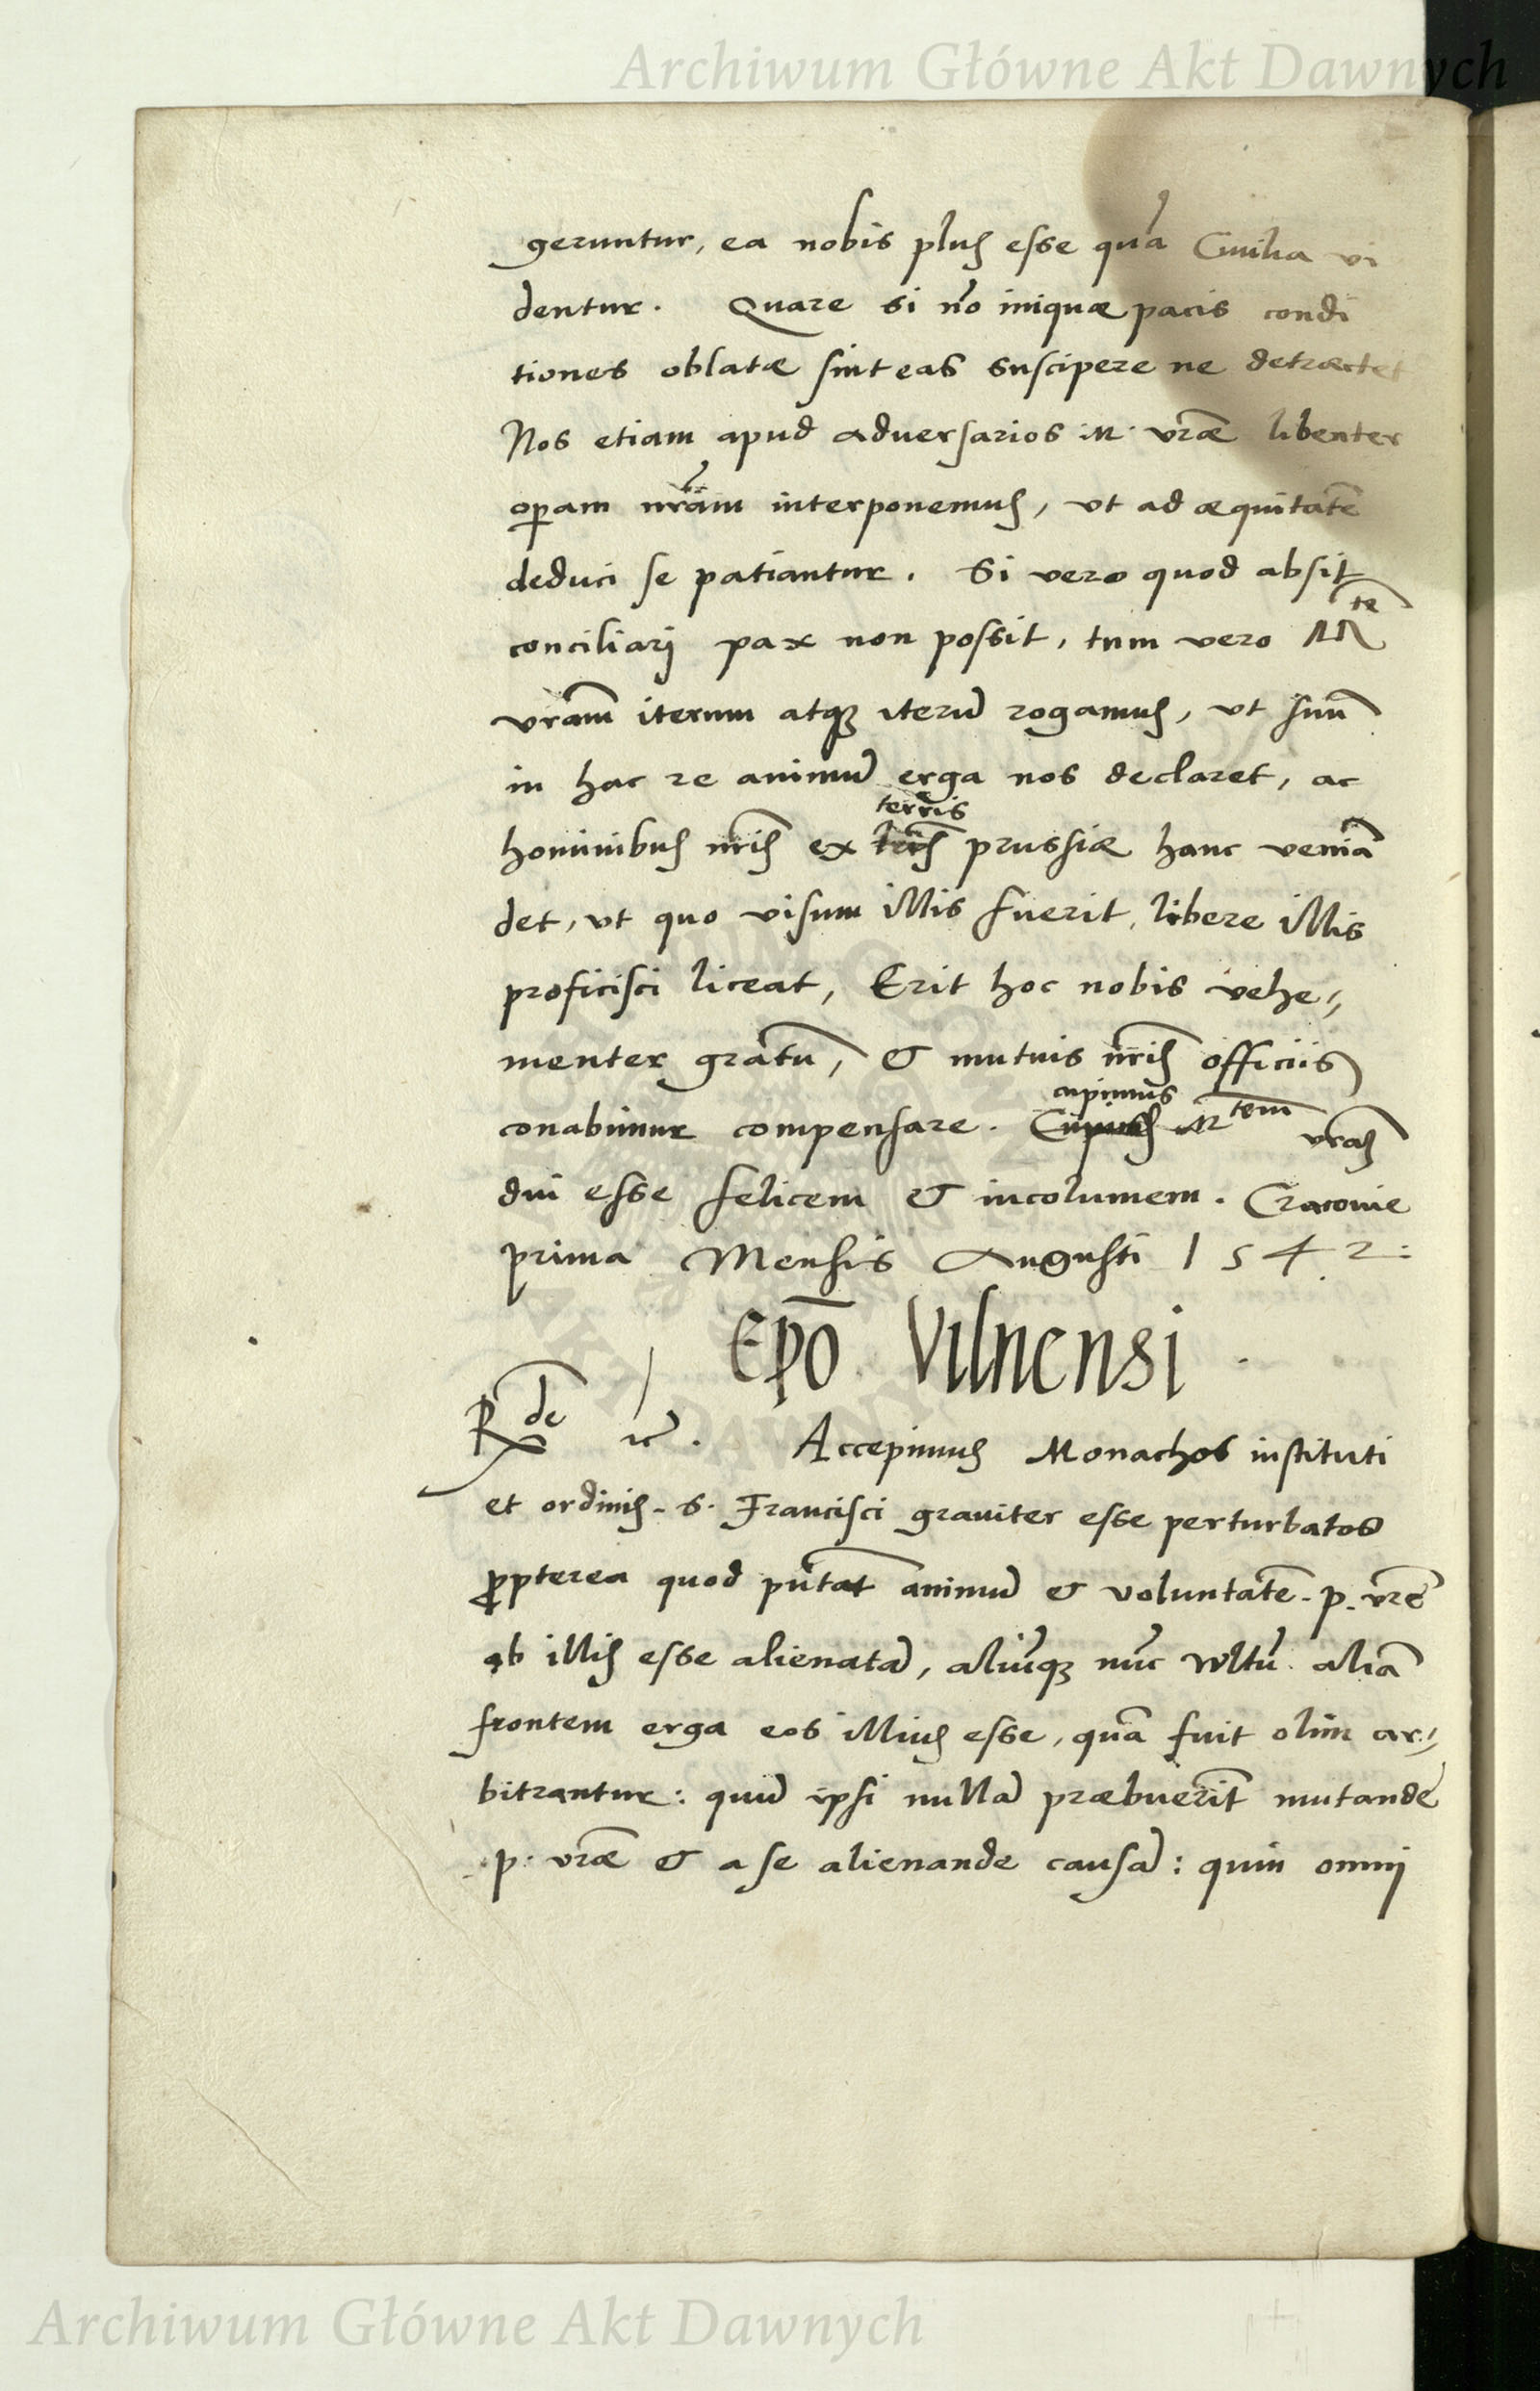 Archiwum Główne Akt Dawnych
geruntur, ea nobis plus esse quā Civilia vi
dentur. Quare si nō iniquæ pacis condi
tiones oblatæ sint eas suscipere ne detræctet
Nos etiam apud adversarios M. vr̄æ libenter
operam nr̄am interponemus, vt ad æquitatē
deduci se patiantur. Si vero quod absit
conciliari pax non possit, tum vero M^te
vr̄am iterum atq3 iterū rogamus, vt suū
in hac re animū erga nos declaret, ac
terris
hominibus nr̄is ex prussiæ hanc veniā
det, vt quo visum illis fuerit, libere illis
proficisci liceat, Erit hoc nobis vehe„
menter gratū, & mutuis nr̄is officiis
cupimus
conabimur compensare. M^tem vr̄am
diu esse felicem & incolumem. Cracovie
prima Mensis Augusti 1542:
Ep̄o Vilnensi
R^de etc. Accepimus Monachos instituti
et ordinis. S. Francisci graviter esse perturbatos
propterea quod putāt animū & voluntatē. p. vr̄e
ab illis esse alienatā, aliūq3 nūc vultū. aliā
frontem erga eos illius esse, quā fuit olim ar„
bitrantur: quū ipsi nullā præbuerīt mutande
.p. vr̄æ & a se alienande causā: quin omnj
Archiwum Główne Akt Dawnych